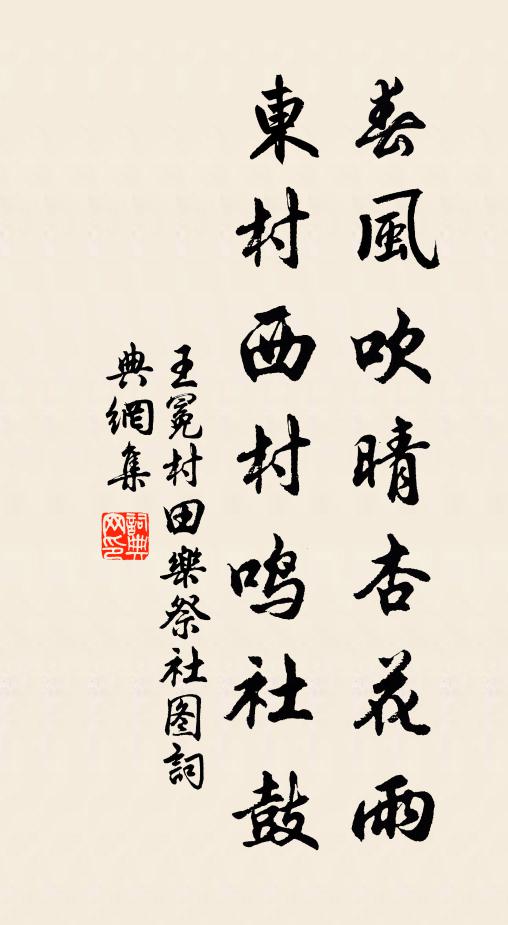 春風吹晴杏花雨
東村西村鳴社鼓
王冕村田樂祭社图詞
典網集
詞典网印